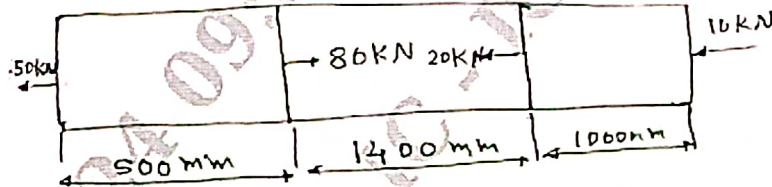 50KN
80KN 20KN
10KN
500mm
1400mm
1000mm